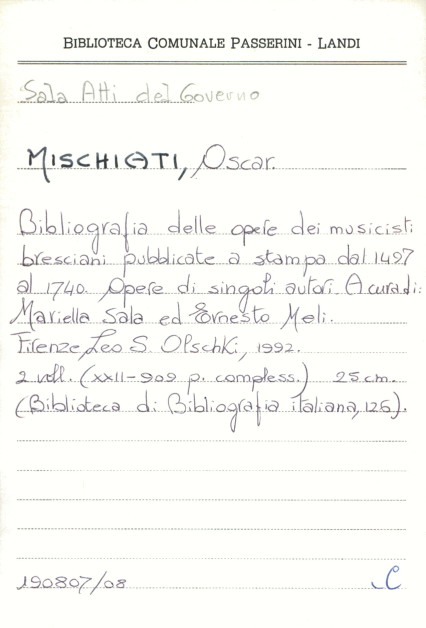 BIBLIOTECA COMUNALE PASSERINI - LANDI
Sala Atti del Governo
MISCHIATI, Oscar.
Bibliografia delle opere dei musicisti
bresciani pubblicate a stampa dal 1497
al 1740. Opere di singoli autori. A cura di:
Mariella Sala ed Ernesto Meli.
Firenze, Leo S. Olschki, 1992.
2 voll. (XXII-909 p. compless.) 25 cm.
(Biblioteca di Bibliografia italiana, 126).
190807/08 C